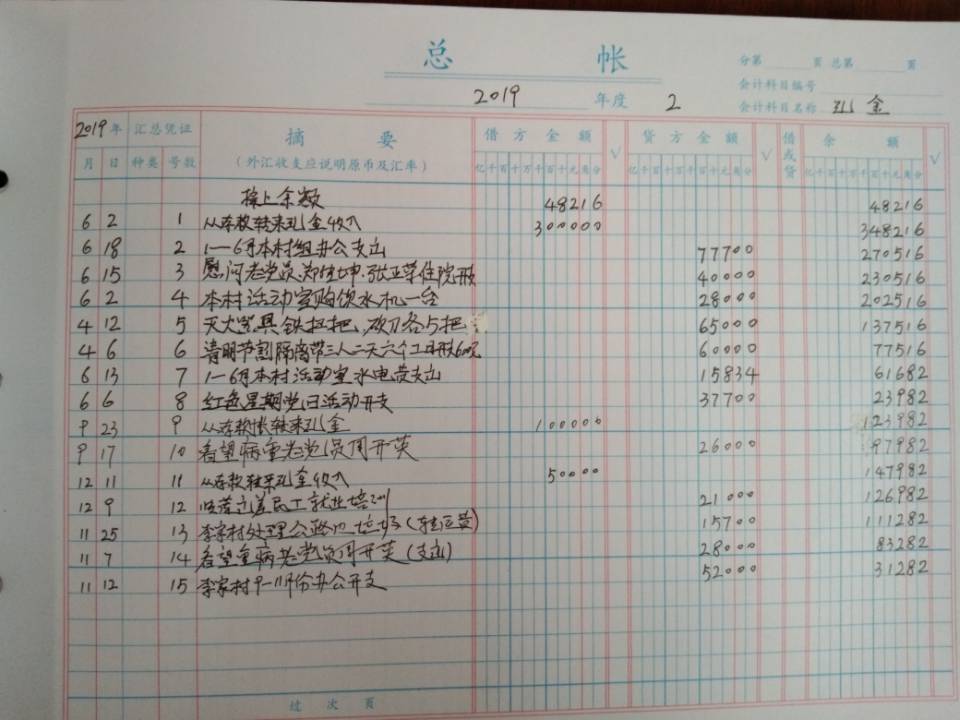 总 帐
分第 页 总第 页
会计科目编号
2019 年度 2 会计科目名称 现金
2019年 汇总凭证 摘 要 借方金额 √ 贷方金额 √ 借或贷 余 额 √
月 日 种类 号数 (外汇收支应说明原币及汇率) 亿千百十万千百十元角分 亿千百十万千百十元角分 亿千百十万千百十元角分
接上余额 48216 48216
6 2 1 从存款转来现金收入 300000 348216
6 18 2 1—6月本村组办公支出 77700 270516
6 15 3 慰问老党员 张正荣住院开支 40000 230516
6 2 4 本村活动室购饮水机一台 28000 202516
4 12 5 灭火器具铁扫把、砍刀各5把 65000 137516
4 6 6 清明节割隔离带三人二天六个工开支600元 60000 77516
6 13 7 1—6月本村活动室水电费支出 15834 61682
6 6 8 红色星期党日活动开支 37700 23982
9 23 9 从存款帐转来现金 100000 123982
9 17 10 看望病重老党员周开英 26000 97982
12 11 11 从存款转来现金收入 50000 147982
12 9 12 民工就业培训 21000 126982
11 25 13 李家村处理公路 (转运费) 15700 111282
11 7 14 看望重病老党员周开英(支出) 28000 83282
11 12 15 李家村9—11月份办公开支 52000 31282
过 次 页